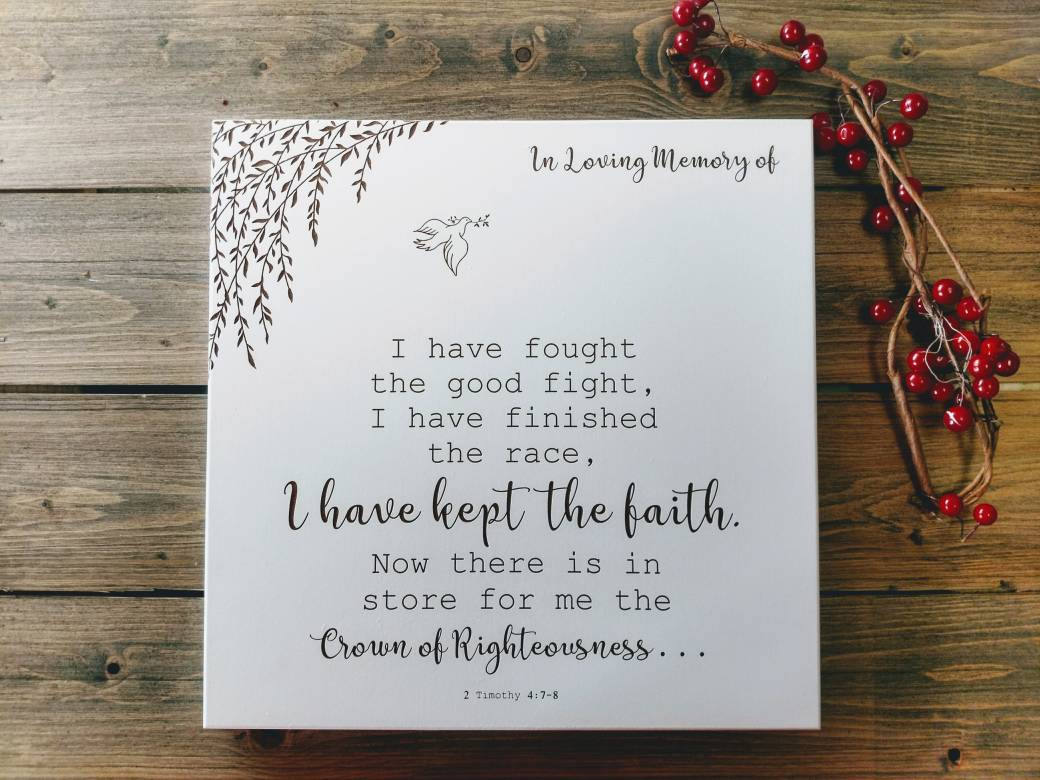 In Loving Memory of
I have fought
the good fight,
I have finished
the race,
I have kept the faith.
Now there is in
store for me the
Crown of Righteousness...
2 Timothy 4:7-8